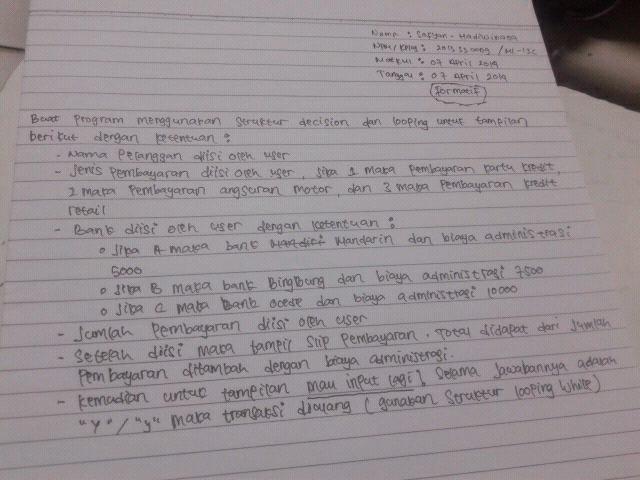 Nama : Sofyan Hadiwinata
NPM/Kelas : 2013230009 / MI-13C
Matkul : 07 April 2014
Tanggal : 07 April 2014
formatif
Buat program menggunakan struktur decision dan looping untuk tampilan
berikut dengan ketentuan :
- Nama Pelanggan diisi oleh user
- Jenis pembayaran diisi oleh user, jika 1 maka pembayaran kartu kredit,
2 maka pembayaran angsuran motor, dan 3 maka pembayaran kredit
retail
- Bank diisi oleh user dengan ketentuan :
o Jika A maka bank Mandarin dan biaya administrasi
5000
o Jika B maka bank Bingbung dan biaya administrasi 7500
o Jika C maka Bank ocese dan biaya administrasi 10000
- Jumlah Pembayaran diisi oleh user
- Setelah diisi maka tampil slip pembayaran. Total didapat dari Jumlah
Pembayaran ditambah dengan biaya administrasi.
- Kemudian untuk tampilan mau input lagi] selama jawabannya adalah
"Y" / "y" maka transaksi diulang (gunakan struktur looping while)